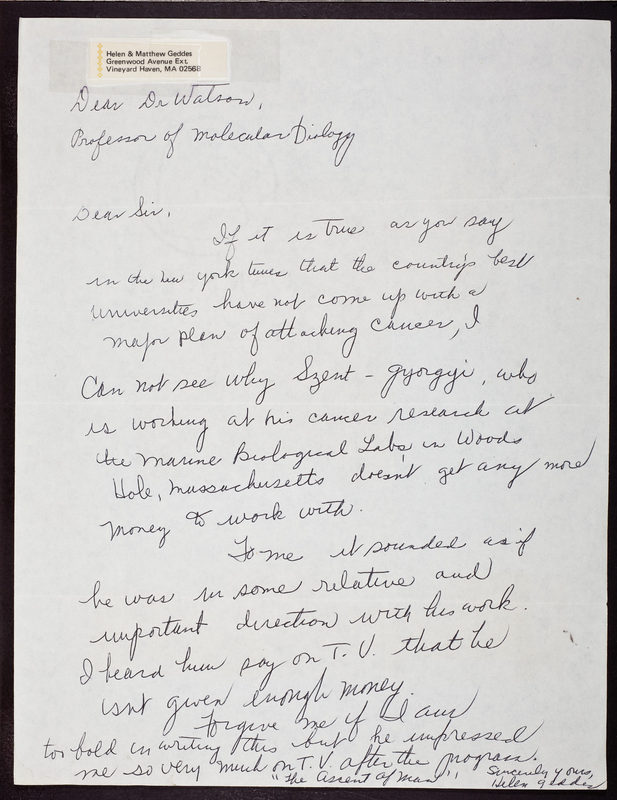 Helen & Matthew Geddes
Greenwood Avenue Ext.
Vineyard Haven, MA 02568
Dear Dr Watson,
Professor of Molecular Biology
Dear Sir,
If it is true as you say
in the new york times that the country's best
universities have not come up with a
major plan of attacking cancer, I
Can not see why Szent - gyorgyi, who
is working at his cancer research at
the Marine Biological Labs, in Woods
Hole, Massachusetts doesn't get any more
money to work with.
To me it sounded as if
he was in some relative and
important direction with his work.
I heard him say on T.V. that he
isnt given enough money.
Forgive me if I am
too bold in writing this but he impressed
me so very much on T.V. after the program.
"the ascent of man"
Sincerely yours,
Helen Geddes